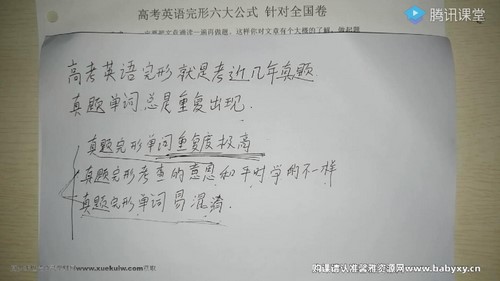 腾讯课堂
高考英语完形六大公式 针对全国卷
高考英语完形就是考近几年真题.
真题单词总是重复出现.
真题完形单词重复度极高
真题完形考查的意思和平时学的不一样
真题完形单词易混淆.
www.xuekulw.com
购课请认准馨雅资源网www.babyxy.cn